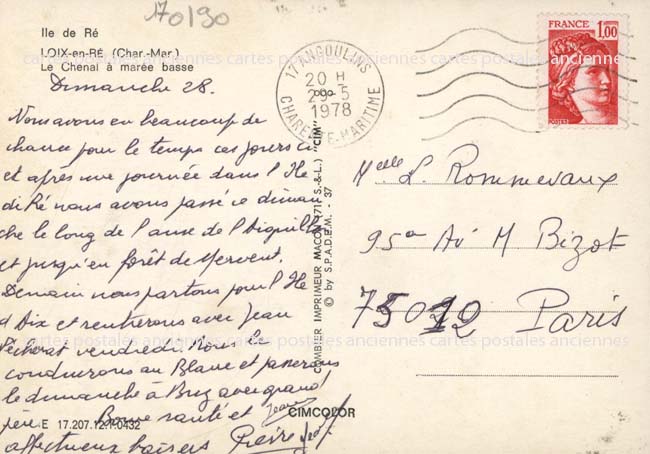 170190
Ile de Ré
LOIX-en-RÉ (Char.-Mar.)
Le Chenal à marée basse
Dimanche 28.
Nous avons eu beaucoup de
chance pour le temps ces jours ci
et après une journée dans l'Ile
de Ré nous avons passé ce diman
che le long de l'anse de l'Aiguillon
et jusqu'en forêt de Mervent.
Demain nous partons pour l'Ile
d'Aix et rentrerons avec Jean
vendredi. Nous le
conduirons au Blanc et passerons
le dimanche à avec grand
père. Bonne santé et
affectueux baisers Pierre
17 ANGOULINS
20 H
29-5
1978
CHARENTE-MARITIME
FRANCE 1,00
COMBIER IMPRIMEUR MACON (71 S.-&-L.) "CIM"
© by S.P.A.D.E.M. - 37
Melle L. Rommevaux
95 Av M Bizot
75012 Paris
cartes postales anciennes cartes postales anciennes cartes postales anciennes
CIMCOLOR
E 17.207.12.1.0432